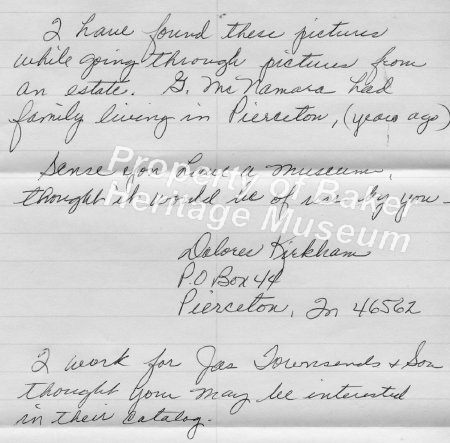 I have found these pictures
while going through pictures from
an estate. G. McNamara had
family living in Pierceton, (years ago)
Sense you have a museum,
thought it would be of use by you -
Dolores Kirkham
P.O Box 44
Pierceton, In 46562
I work for Jas Townsends & Son
thought you may be interested
in their catalog.
Property of Baker
Heritage Museum